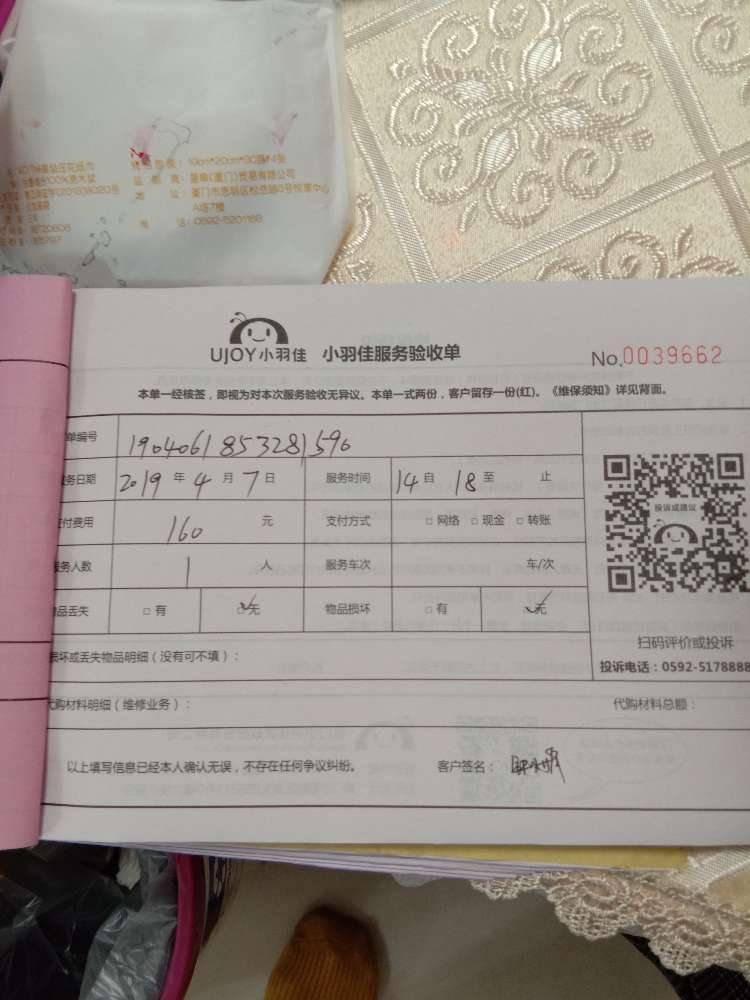 10cm*20cm*30包*4张
(厦门)贸易有限公司
A栋7楼
电 话：0592-5201168
UJOY小羽佳 小羽佳服务验收单
No.0039662
本单一经核签，即视为对本次服务验收无异议。本单一式两份，客户留存一份(红)。《维保须知》详见背面。
单编号 1904061853281590
务日期 2019 年 4 月 7 日 服务时间 14 自 18 至 止
付费用 160 元 支付方式 □ 网络 □ 现金 □ 转账
服务人数 1 人 服务车次 车/次
物品丢失 □ 有 □ 无 物品损坏 □ 有 □ 无
投诉或建议
扫码评价或投诉
损坏或丢失物品明细（没有可不填）：
投诉电话：0592-5178888
代购材料明细（维修业务）： 代购材料总额：
以上填写信息已经本人确认无误，不存在任何争议纠纷。 客户签名：